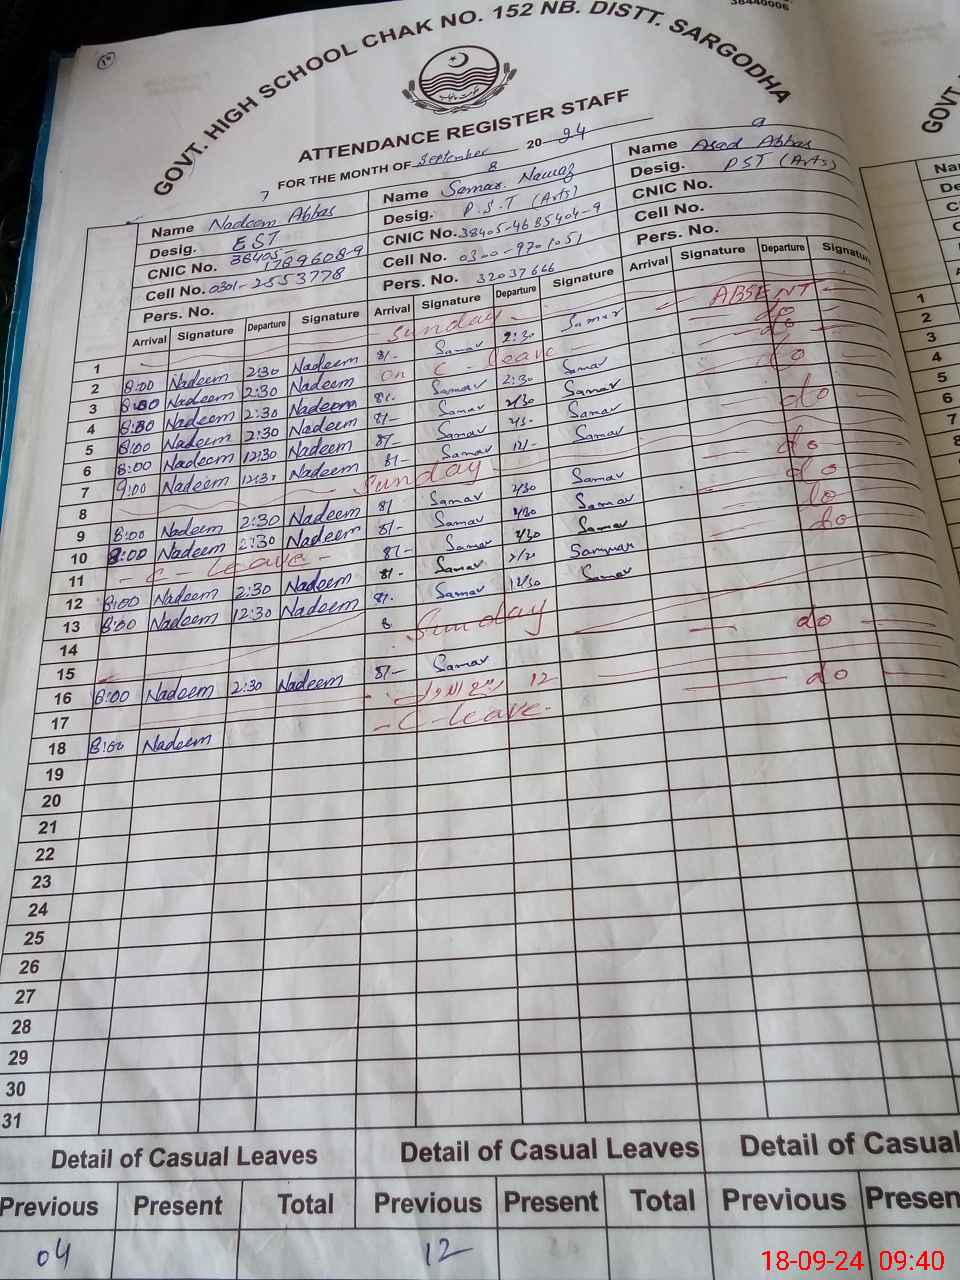 38440006
GOVT. HIGH SCHOOL CHAK NO. 152 NB. DISTT. SARGODHA
ATTENDANCE REGISTER STAFF
FOR THE MONTH OF September 2024
7
Name Nadeem Abbas
Desig. EST
CNIC No. 38405 1789608-9
Cell No. 0301-2553778
Pers. No.
8
Name Samar Nawaz
Desig. P.S.T (Arts)
CNIC No. 38405-4685404-9
Cell No. 0300-9701051
Pers. No. 32037666
9
Name Asad Abbas
Desig. PST (Arts)
CNIC No.
Cell No.
Pers. No.
Arrival Signature Departure Signature Arrival Signature Departure Signature Arrival Signature Departure Signature
1 Sunday
2 8:00 Nadeem 2:30 Nadeem 8/- Samar 2:30 Samar ABSENT
3 8:00 Nadeem 2:30 Nadeem on C - leave do
4 8:00 Nadeem 2:30 Nadeem 8/- Samar 2:30 Samar do
5 8:00 Nadeem 2:30 Nadeem 8/- Samar 2/30 Samar do
6 8:00 Nadeem 12:30 Nadeem 8/- Samar Samar do
7 9:00 Nadeem 12:30 Nadeem 8/- Samar 12/- Samar
8 Sunday
9 8:00 Nadeem 2:30 Nadeem 8/ Samar 2/30 Samar do
10 8:00 Nadeem 2:30 Nadeem 8/- Samar 2/30 Samar do
11 - C - leave - 8/- Samar 2/30 Samar do
12 8:00 Nadeem 2:30 Nadeem 8/- Samar Sammar do
13 8:00 Nadeem 12:30 Nadeem 8/- Samar 12/30 Samar
14 8
15 Sunday
16 8:00 Nadeem 2:30 Nadeem 8/- Samar do
17 12 ربیع الاول
18 8:00 Nadeem - C - leave. do
19
20
21
22
23
24
25
26
27
28
29
30
31
Detail of Casual Leaves Detail of Casual Leaves Detail of Casual
Previous Present Total Previous Present Total Previous Presen
04 12
GOVT
1
2
3
4
5
6
7
8
18-09-24 09:40